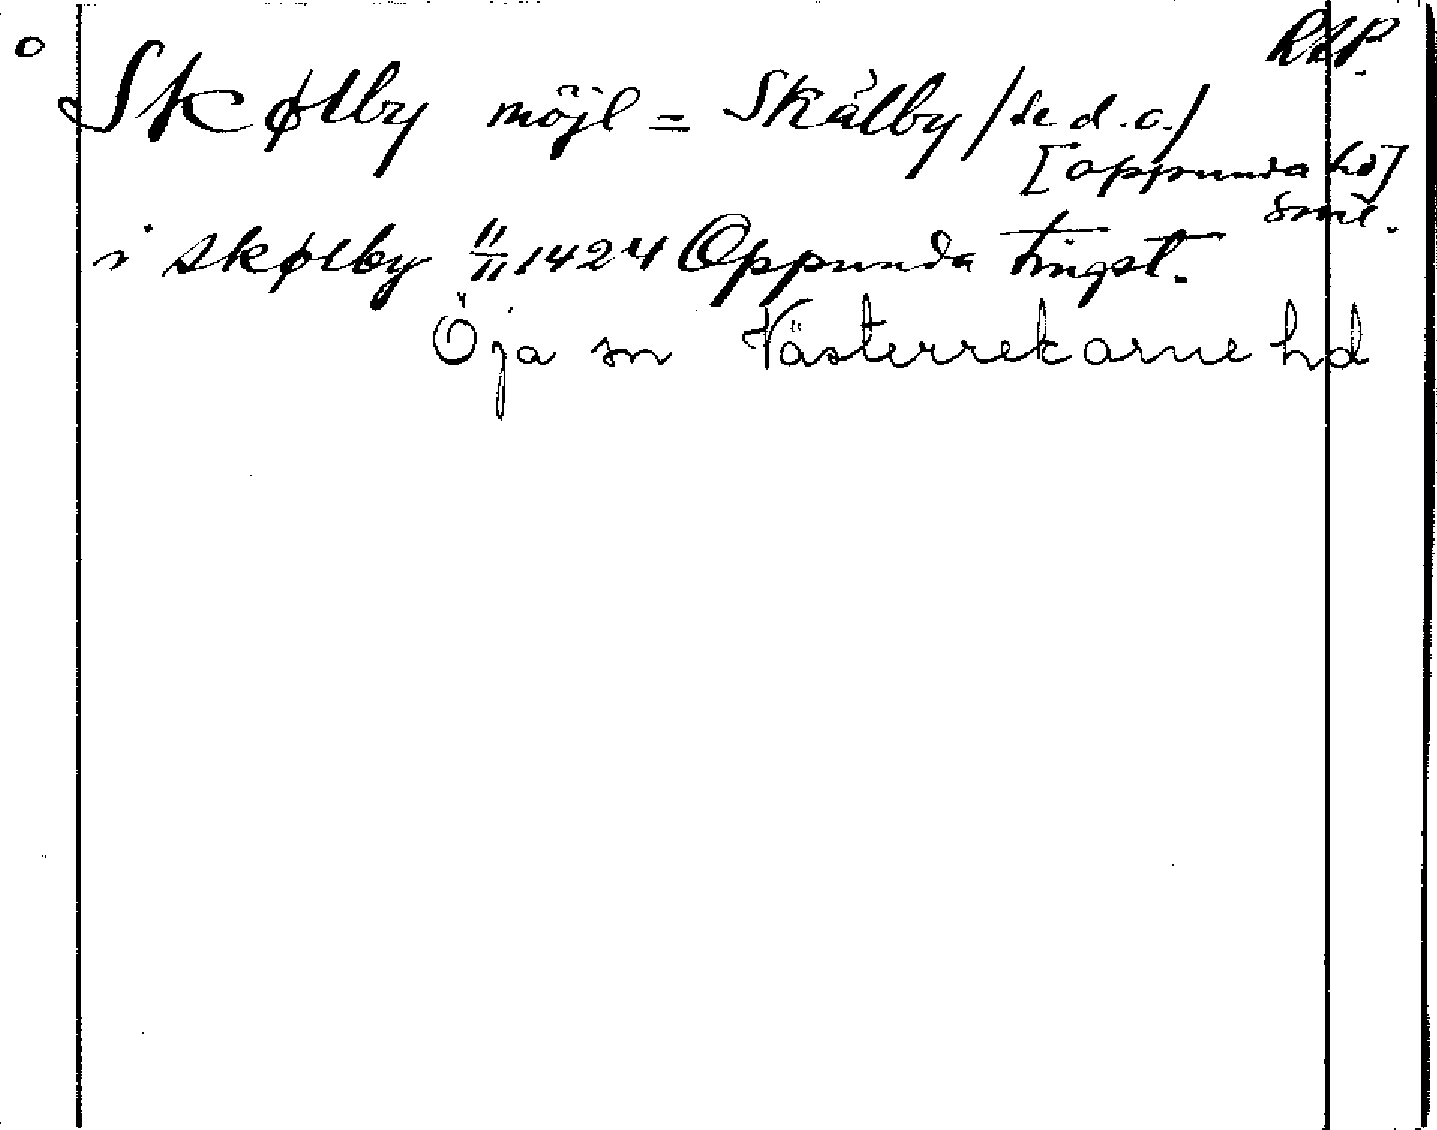 o
RAP.
Skølby möjl = Skålby /se d.o./
[Oppunda hd]
Sml.
i skølby 11/11 1424 Oppunda tingst.
Öja sn Västerrekarne hd